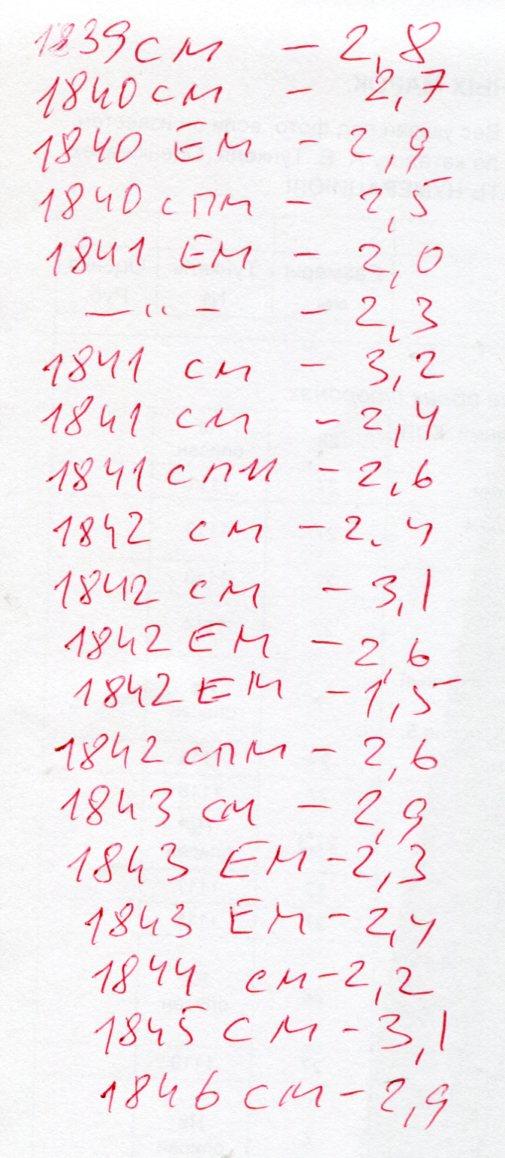 1839 см – 2,8
1840 см – 2,7
1840 ЕМ – 2,9
1840 спм – 2,5
1841 ЕМ – 2,0
—"— – 2,3
1841 см – 3,2
1841 см – 2,4
1841 спм – 2,6
1842 см – 2.4
1842 см – 3,1
1842 ЕМ – 2,6
1842 ЕМ – 1,5
1842 спм – 2,6
1843 см – 2,9
1843 ЕМ – 2,3
1843 ЕМ – 2,4
1844 см – 2,2
1845 СМ – 3,1
1846 СМ – 2,9